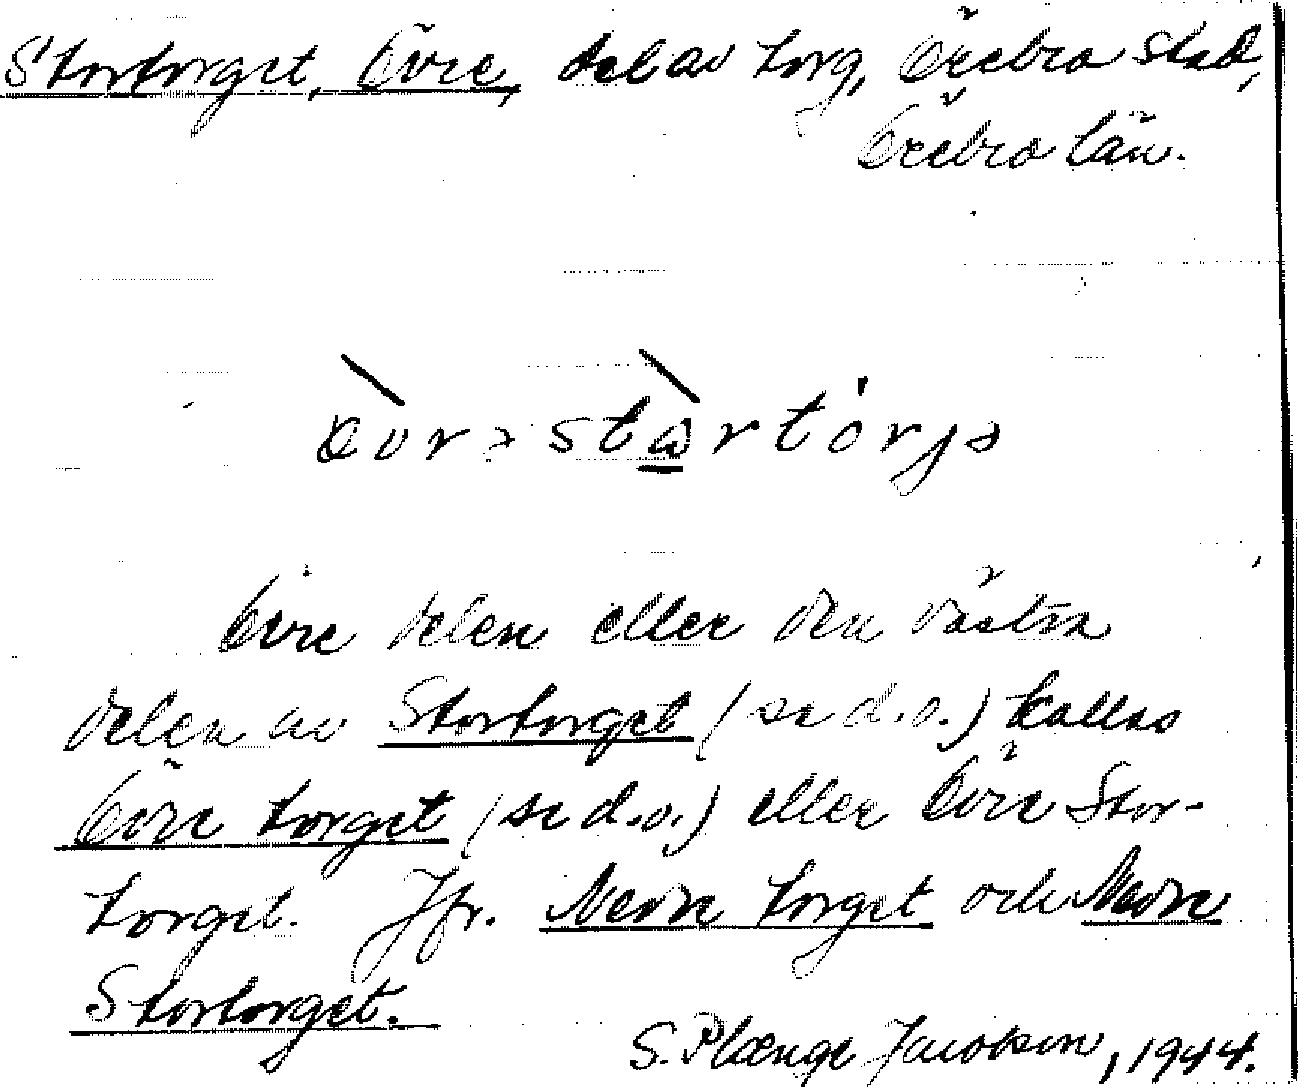 Stortorget, Övre, del av torg, Örebro stad,
Örebro län.
Övre delen eller den västra
delen av Stortorget (se d.o.) kallas
Övre torget (se d.o.) eller Övre Stor-
torget. Jfr. Nedre torget och Nedre
Stortorget.
S. Plænge Jacobson, 1944.